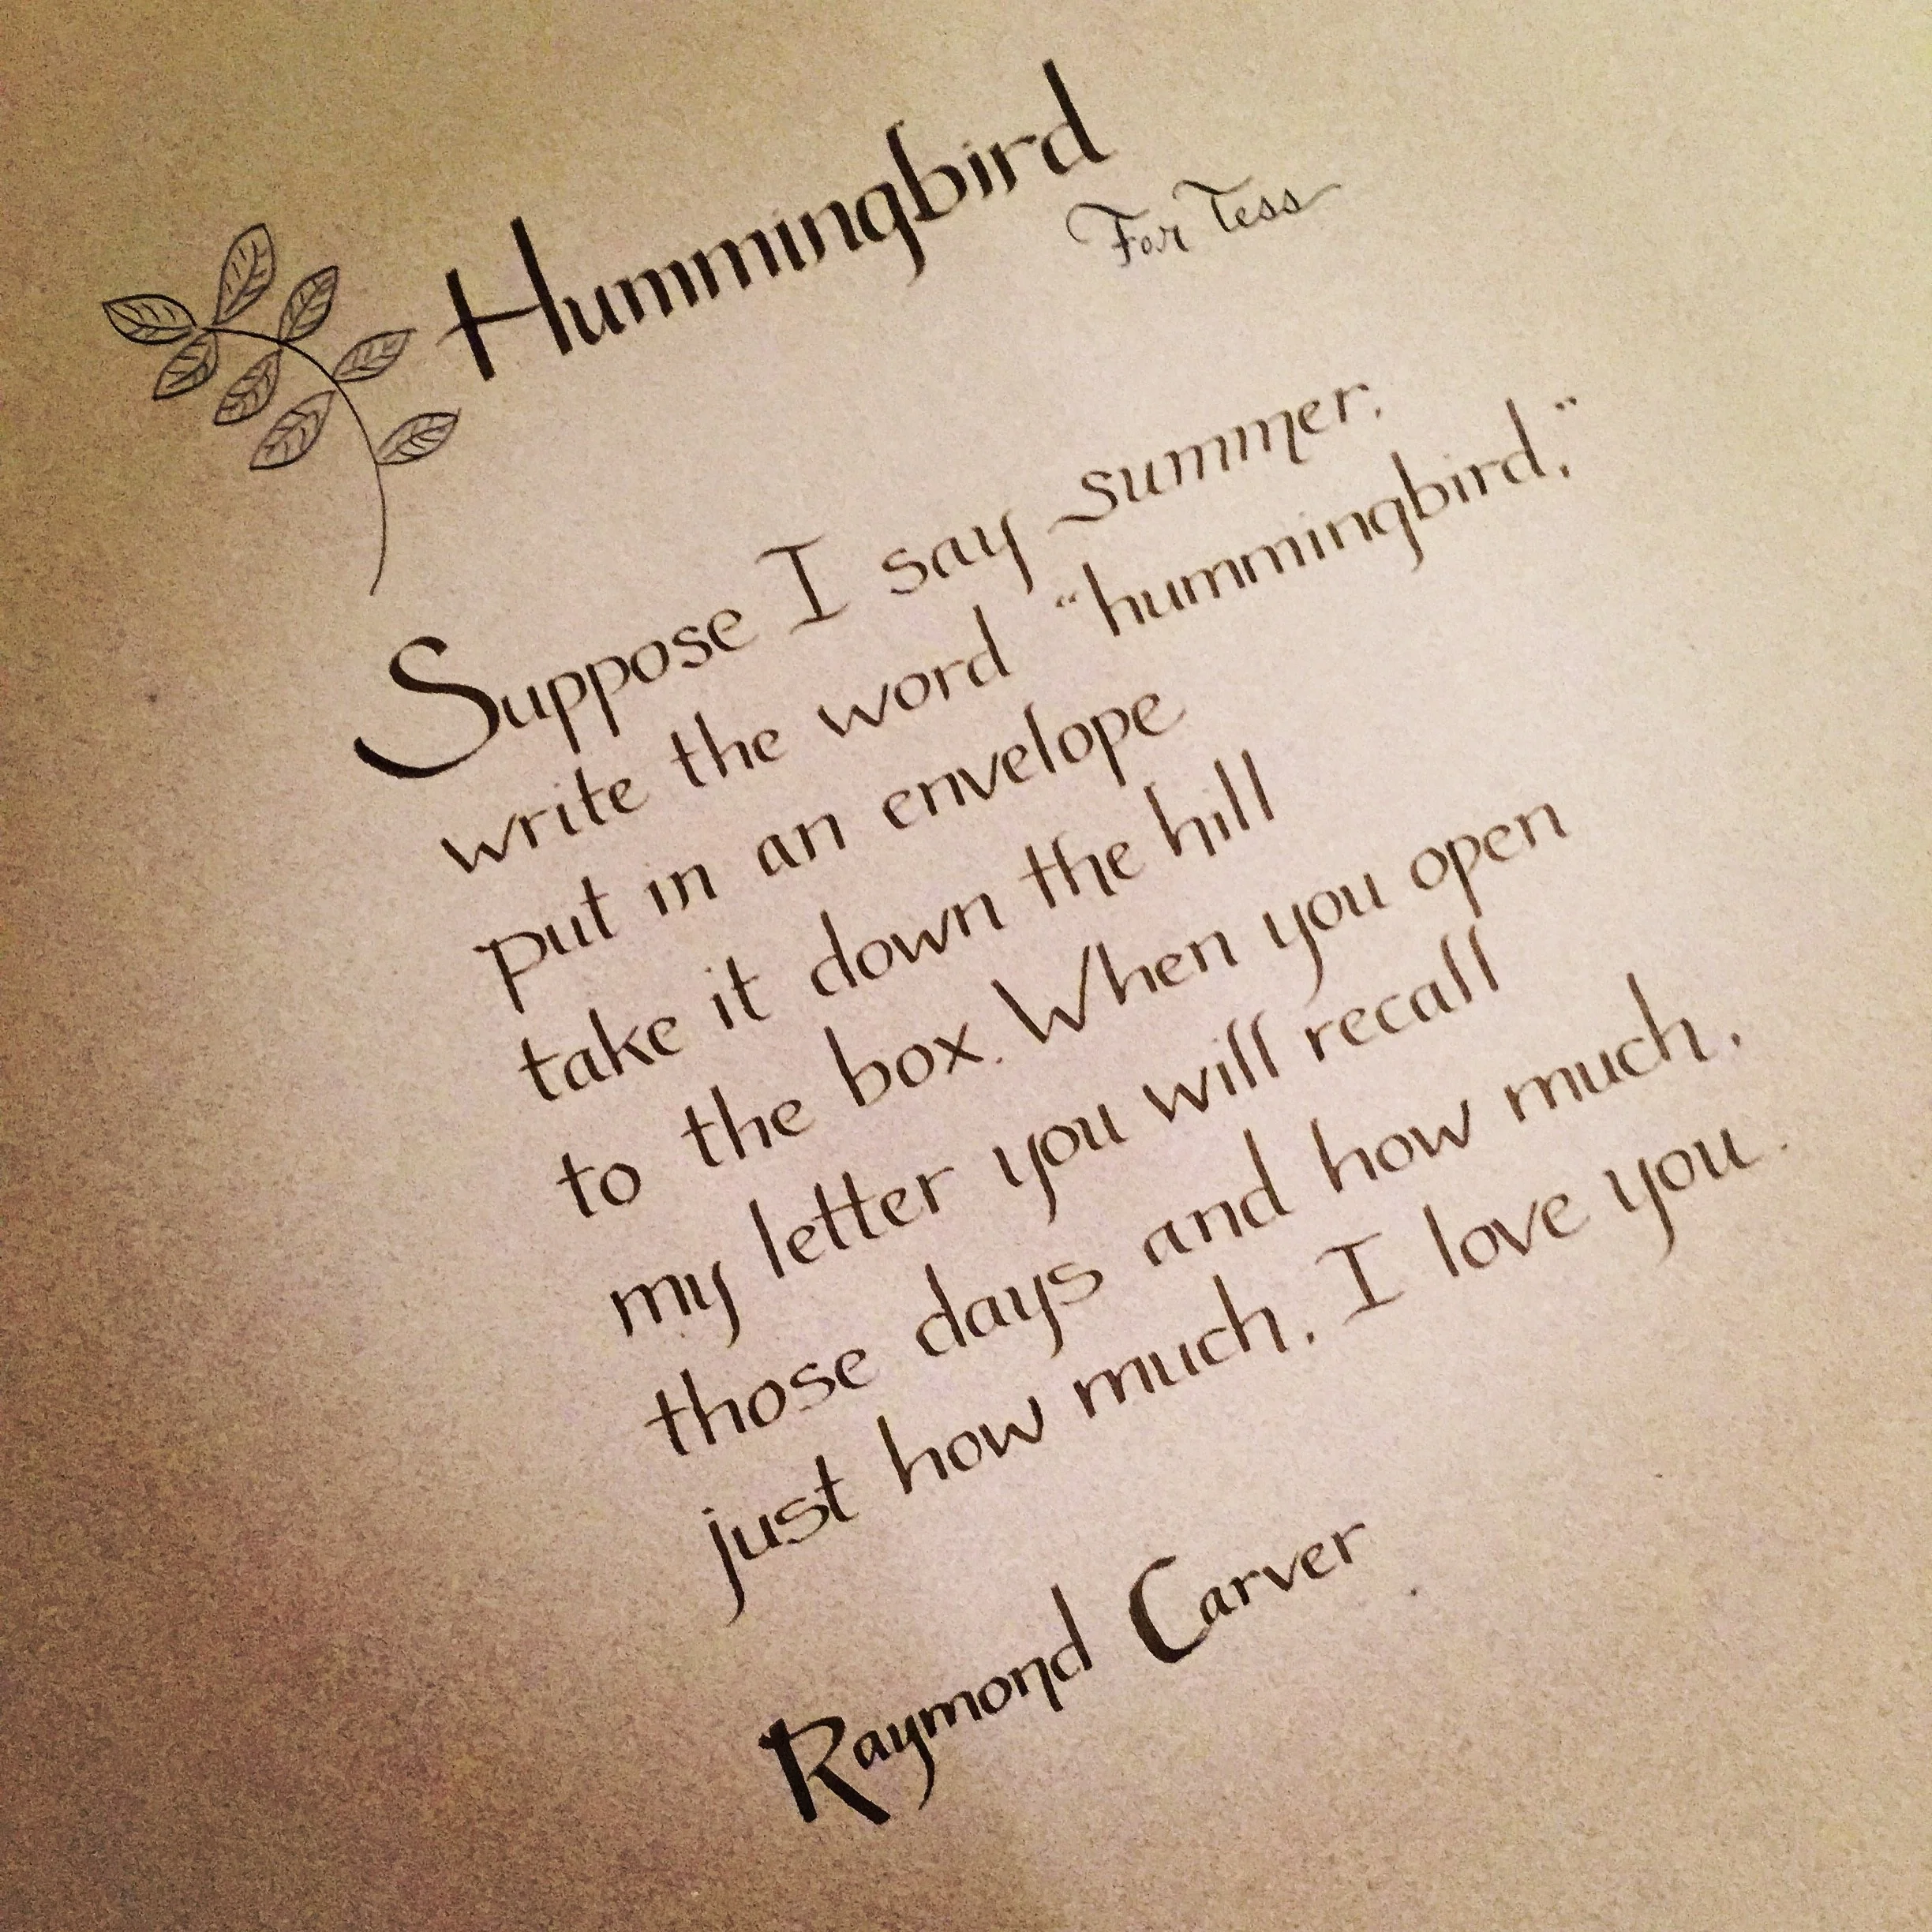 Hummingbird
For Tess
Suppose I say summer,
write the word "hummingbird,"
put in an envelope
take it down the hill
to the box. When you open
my letter you will recall
those days and how much,
just how much, I love you.
Raymond Carver